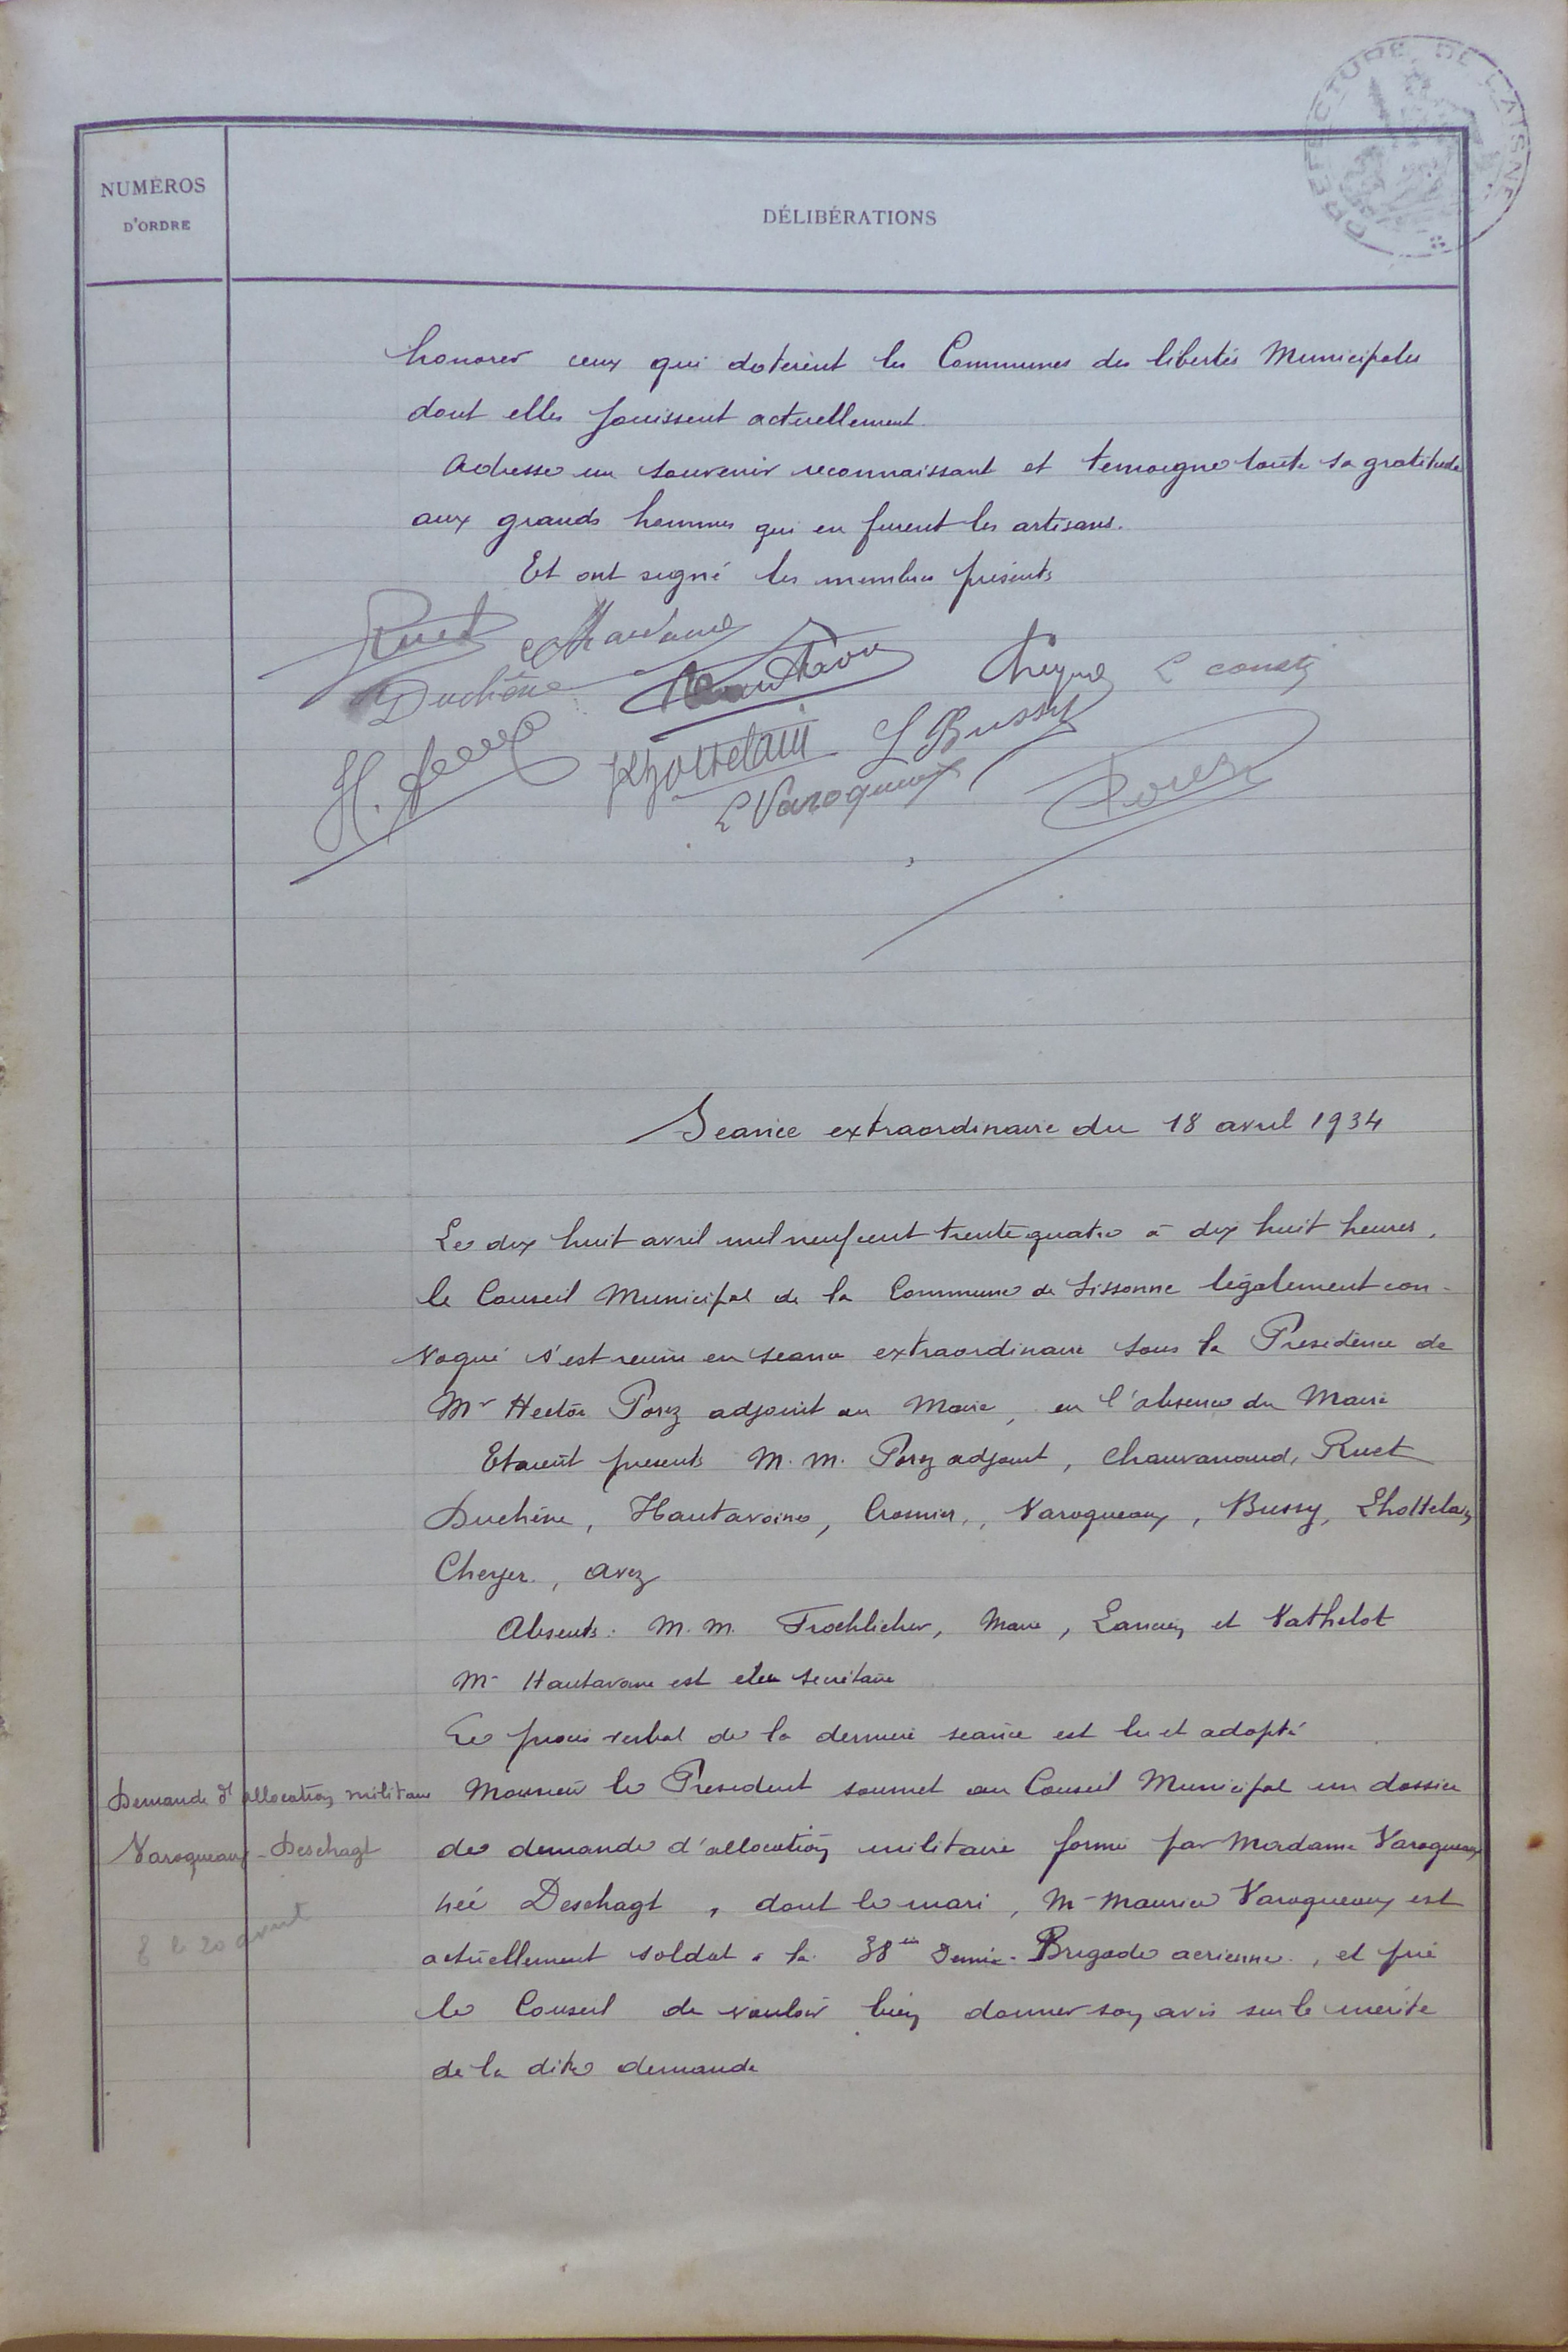 PRÉFECTURE DE L'AISNE
NUMÉROS
D'ORDRE
DÉLIBÉRATIONS
honorer ceux qui dotèrent les Communes des libertés Municipales
dont elles jouissent actuellement.
Adresse un souvenir reconnaissant et temoigne toute sa gratitude
aux grands hommes qui en furent les artisans.
Et ont signé les membres présents
Ruet
Duchêne
Lhottelain
L Bussy
L Varoqueaux
Seance extraordinaire du 18 avril 1934
Le dix huit avril mil neuf cent trente quatre à dix huit heures,
le Conseil Municipal de la Commune de Sissonne légalement con-
voqué s'est reuni en seance extraordinaire sous la Presidence de
Mr Hector Porez adjoint au Maire, en l'absence du Maire
Etaient presents M. M. Porez adjoint, Chauvanaud, Ruet
Duchêne, Hautavoine, Crosnier, Varoqueaux, Bussy, Lhottelain
Cheyer, Avez
Absents : M. M. Froehlicher, Maire, et Vathelot
Mr Hautavoine est elu secrétaire
Le procès verbal de la derniere seance est lu et adopté
Demande d'allocation militaire
Varoqueaux - Deschagt
Monsieur le President soumet au Conseil Municipal un dossier
de demande d'allocation militaire formé par Madame Varoqueaux
née Deschagt, dont le mari, Mr Maurice Varoqueaux est
actuellement soldat à la 38me Demie-Brigade aerienne, et prie
le Conseil de vouloir bien donner son avis sur le mérite
de la dite demande